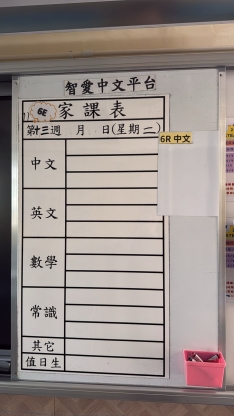 智愛中文平台
6E 家課表
第十三週 月 日(星期二)
6R 中文
中文
英文
數學
常識
其它
值日生